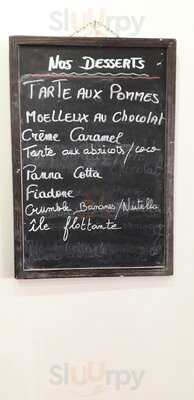 Sluurpy
Nos Desserts
Tarte aux Pommes
Moelleux au Chocolat
Crème Caramel
Tarte aux abricots/coco
Panna Cotta
Fiadone
Crumble Bananes/Nutella
île flottante
Sluurpy